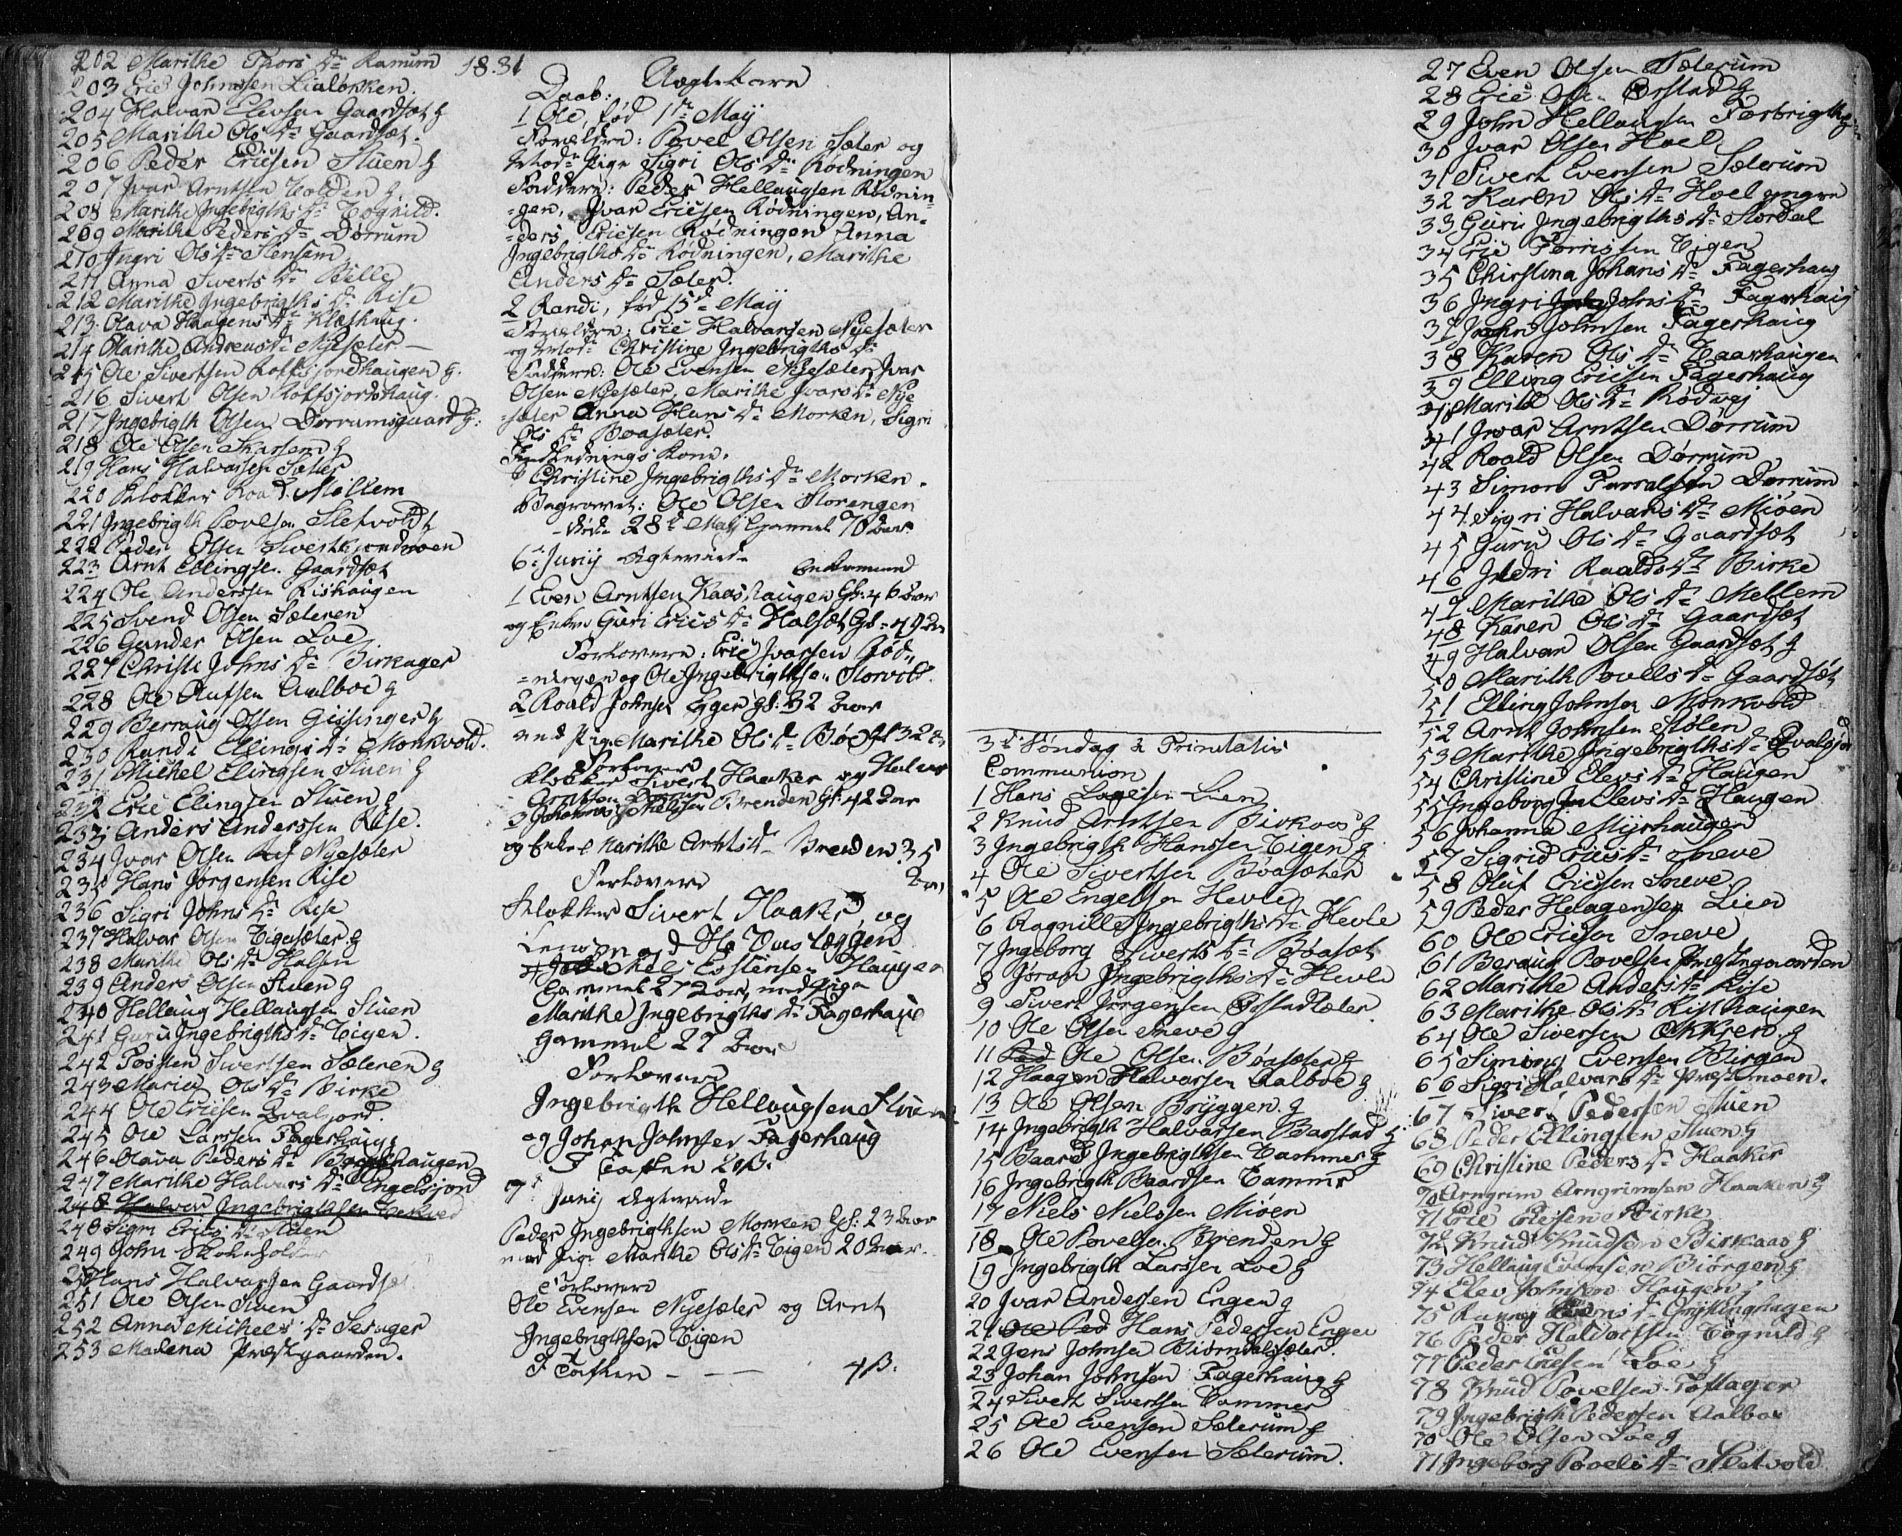 202 Marithe Thors Dr Ramum
203 Eric Johnssen Lialøkken.
204 Halvar Elevsen Gaardsøt g
205 Marithe Ols Dr Gaardsøt.
206 Peder Ericsen Stuen g
207 Jvar Arntsen Volden g
208 Marithe Ingebrigths Dr Tøgnild.
209 Marithe Peders Dr Dørrum
210 Ingri Ols Dr Stensem
211 Anna Siverts Dr Bille
212 Marithe Ingebrigths Dr Rise
213 Olava Haagens Dr Kleshaug.
214 Marithe Andreas Dr Nyesæter
215 Ole Sivertsen haugen g.
216 Sivert Olsen haug.
217 Ingebrigth Olsen Dørrumsgaard g.
218 Ole Olsen Skarsem g
219 Hans Halvorsen Sæter
220 Klokker Roald Mellem
221 Ingebrigth Povelsen Sletvold g
222 Peder Olsen
223 Arnt Ellingsen Gaardsøt
224 Ole Anderssen Rishaugen
225 Svend Olsen Sæteren
226 Gunder Olsen Loe
227 Christi Johns Dr Birkager
228 Ole Olufsen Aalboe g
229 Beraug Olsen Gissinger g
230 Randi Ellings Dr Monkvold.
231 Michel Elingsen Stuen g
232 Eric Elingsen Stuen g
233 Anders Anderssen Rise.
234 Jvar Olsen Nyesæter
235 Hans Jørgensen Rise
236 Sigri Johns Dr Rise
237 Halvar Olsen Vigensæter g
238 Marithe Ols Dr Halsen
239 Anders Olsen Stuen g
240 Hellaug Hellaugsen Stuen
241 Guru Ingebrigths Dr Vigen.
242 Tosten Sivertsen Sæteren g
243 Marit Ols Dr Birke
244 Ole Ericsen Qvalsjord.
245 Ole Larssen Fagerhaug
246 Olava Peders Dr haugen
247 Marithe Halvars Dr Engelsjord
248 Halvor Ingebrigthsen
248 Sigri Erics Dr Stuen
249 John Skoleholder
250 Hans Halvarsen Gaards
251 Ole Olsen Stuen
252 Anna Michels Dr Seruger
253 Malena Præstgaarden.
1831
Daab: Aegtekarn
1 Ole, fød 1te Maij
Forældre: Povel Olsen Sæter og
Mod. Pige Sigri Ols Dr Rødningen
Faddere: Peder Hellaugsen Rødnin-
gen, Jvar Ericsen Rødningen, An-
ders Ericsen Rødningen Anna
Ingebrigths Dr Rødningen, Marithe
Anders Dr Sæter.
2 Randi, fød 15de Maij
Forældre: Eric Halvarsen Nyesæter
og Christine Ingebrigths Dr
Faddere: Ole Evensen Nyesæter, Jvar
Olsen Nyesæter, Marithe Jvars Dr Nye-
sæter Anna Hans Dr Morken, Sigri
Ols Dr Boasæter.
Indlednings Kone.
Christine Ingebrigths Dr Morken.
Begravet: Ole Olsen Storengen
død 28de Maij Gammel 70 Aar
6te Junij Aegteviede
Enkemand
1 Even Arntsen haugen Gl: 46 Aar
og Enke Guri Erics Dr Halsøt Gl: 49 Aar
Forlovere: Eric Jvarsen Rød-
ningen og Ole Ingebrigthsen Storvold.
2 Roald Johnsen Egger gl: 32 Aar
med Pige Marithe Ols Dr Boe gl 32 Aar
Forlovere
Klokker Sivert Haaker og Halvar
Arntsen
3 Johannes Brenden Gl: 42 Aar
og Enke Marithe Arnts Dr Brenden 35
Aar
Forlovere
Klokker Sivert Haaker, og
Vuslæggen
Estensen Haugen
Gammel 27 Aar, med Pige
Marithe Ingebrigths Dr Fagerhaug
gammel 27 Aar
Forlovere
Ingebrigth Hellaugsen Stuen
og Johan Johnsen Fagerhaug
I Taflen 20 ß.
7de Junij Aegteviede
Peder Ingebrigthsen Morken Gl: 23 Aar
med Pige Marithe Ols Dr Vigen 20 Aar.
Forlovere
Ole Evensen Nyesæter og Arnt
Ingebrigthsen Vigen
I Taflen - - - 4 ß.
3de Søndag à Trinitatis
Communion
1 Hans Lien
2 Knud Arntsen Birkaas g
3 Ingebrigth Hanssen Vigen g
4 Ole Sivertsen Boasæter
5 Ole Engelsen Hevle
6 Ragnille Ingebrigths Dr Hevle
7 Ingeborg Siverts Dr Boasæt
8 Joran Ingebrigths Dr Hevle
9 Sivert Jørgensen sæter.
10 Ole Olsen Sneve g
11 Ole Olsen Boasæter g
12 Haagen Halvarsen Aalboe g
13 Ole Olsen Bryggen g
14 Ingebrigth Halvarsen Barstad g
15 Baard Ingebrigthsen Vammer g
16 Ingebrigth Baardsen Vammer
17 Niels Nielssen Mioen
18 Ole Povelsen Brenden g
19 Ingebrigth Larssen Loe g
20 Jvar Andersen Engen g
21 Ole Ped Hans Pedersen Engen
22 Jens Johnsen Biørndalsæter.
23 Johan Johnsen Fagerhaug g
24 Sivert Sivertsen Vammer
25 Ole Evensen Sæterum g
26 Ole Evensen Sæterum.
27 Even Olsen Sæterum
28 Eric Olsen Ørstad g
29 John Hellaugsen
30 Jvar Olsen Hoel
31 Sivert Evensen Sæterum
32 Karen Ols Dr Hoel yngre
33 Guri Ingebrigths Dr Stordal
34 Eric Vigen
35 Christina Johans Dr Fagerhaug
36 Ingri Johns Dr Fagerhaug
37 John Johnsen Fagerhaug
38 Karen Ols Dr haugen
39 Elling Ericsen Fagerhaug
40 Marit Ols Dr Rødvej
41 Jvar Arntsen Dørrum
42 Roald Olsen Dørrum
43 Simon Dørrum
44 Sigri Halvars Dr Mioen
45 Guru Ols Dr Gaardsøt
46 Roalds Dr Birke
47 Marithe Ols Dr Mellem
48 Karen Ols Dr Gaardsøt
49 Halvar Olsen Gaardsøt g
50 Marith Povels Dr Gaardsøt
51 Elling Johnsen Monkvold
52 Arnt Johnsen Stølen
53 Marithe Ingebrigths Dr Qvalsjord
54 Christine Elevs Dr Haugen
55 Ingeborg Elevs Dr Haugen
56 Johanna Myrhaugen
57 Sigrid Erics Dr Sneve
58 Oluf Ericsen Sneve
59 Peder Haagensen Lien
60 Ole Ericsen Sneve
61 Beraug Povelsen Præstgaarden
62 Marithe Anders Dr Rise
63 Marithe Ols Dr Risthaugen
64 Ole Siversen g
65 Simon Evensen Biørgen
66 Sigri Halvars Dr Præstmoen.
67 Siver Pedersen Stuen
68 Peder Ellingsen Stuen g
69 Christine Peders Dr Haaker
70 Arngrim Arngrimsen Haaken g
71 Eric Ericsen Birke
72 Knud Knudsen Birkaas g
73 Hellaug Evensen Biørgen g
74 Elev Johnsen Haugen g
75 Ranny Dr hagen
76 Peder Haldorssen Tøgnild g
77 Peder Ericsen Loe g
78 Knud Povelsen Toftager
79 Ingebrigth Pedersen Aalboe
70 Ole Olsen Loe g
71 Ingeborg Povels Dr Sletvold